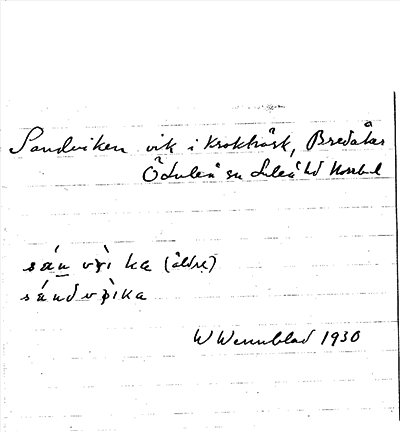 Sandviken vik i Krokträsk, Bredåker
Överluleå sn Luleå hd Norrb l
sán vìka (äldre)
sándvìka
W Wennblad 1930